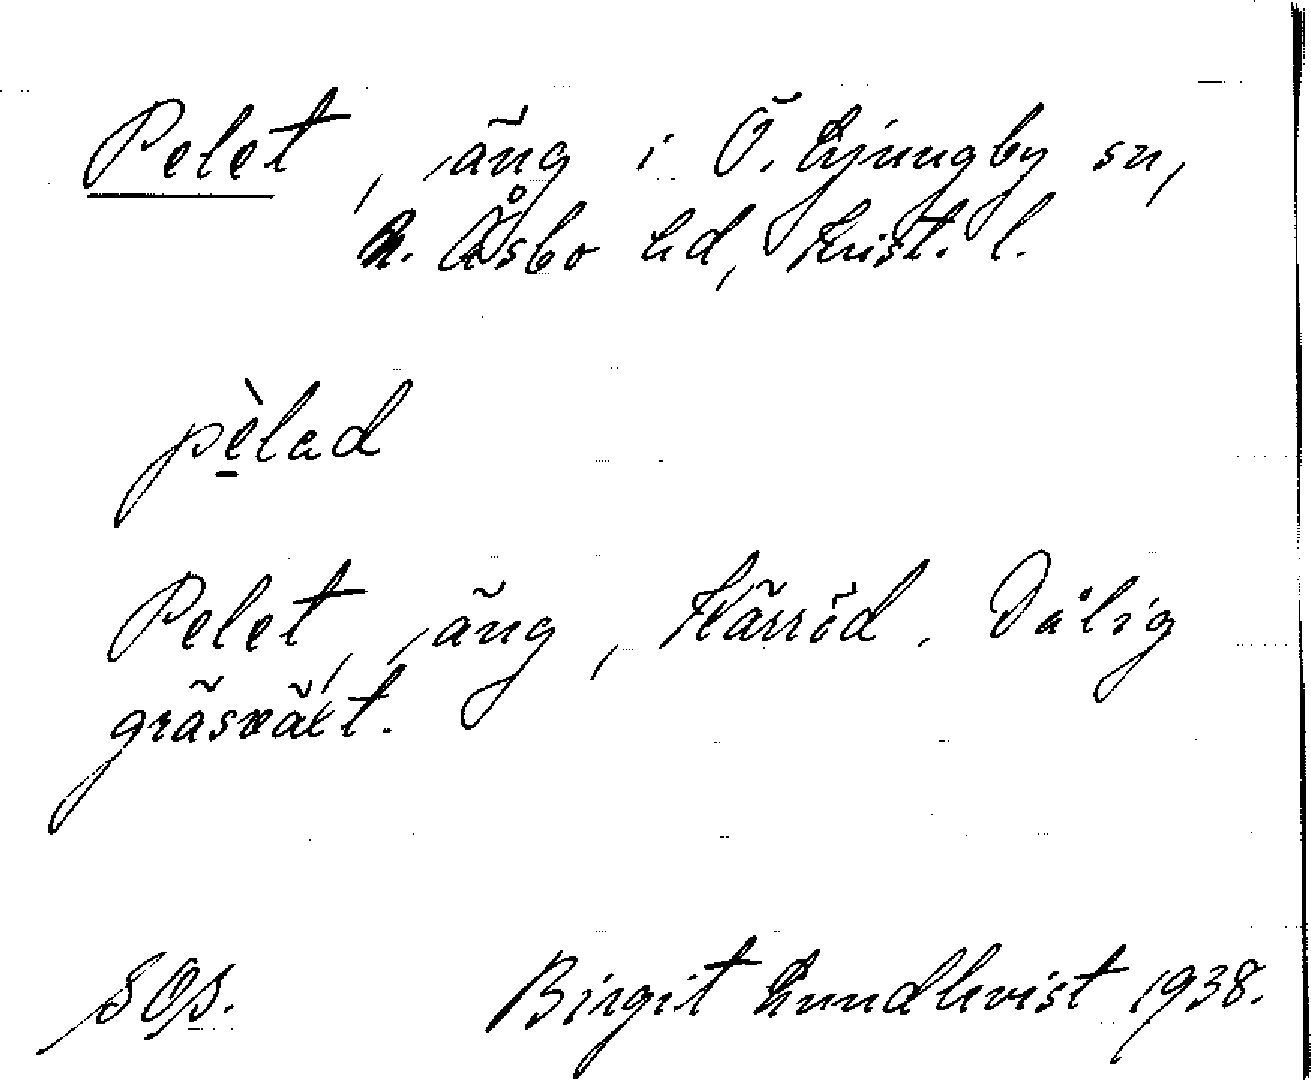 Pelet, äng i Ö. Ljungby sn,
N. Åsbo hd, Krist. l.
pèlad
Pelet, äng, Härröd. Dålig
gräsväxt.
SOS. Birgit Lundkvist 1938.